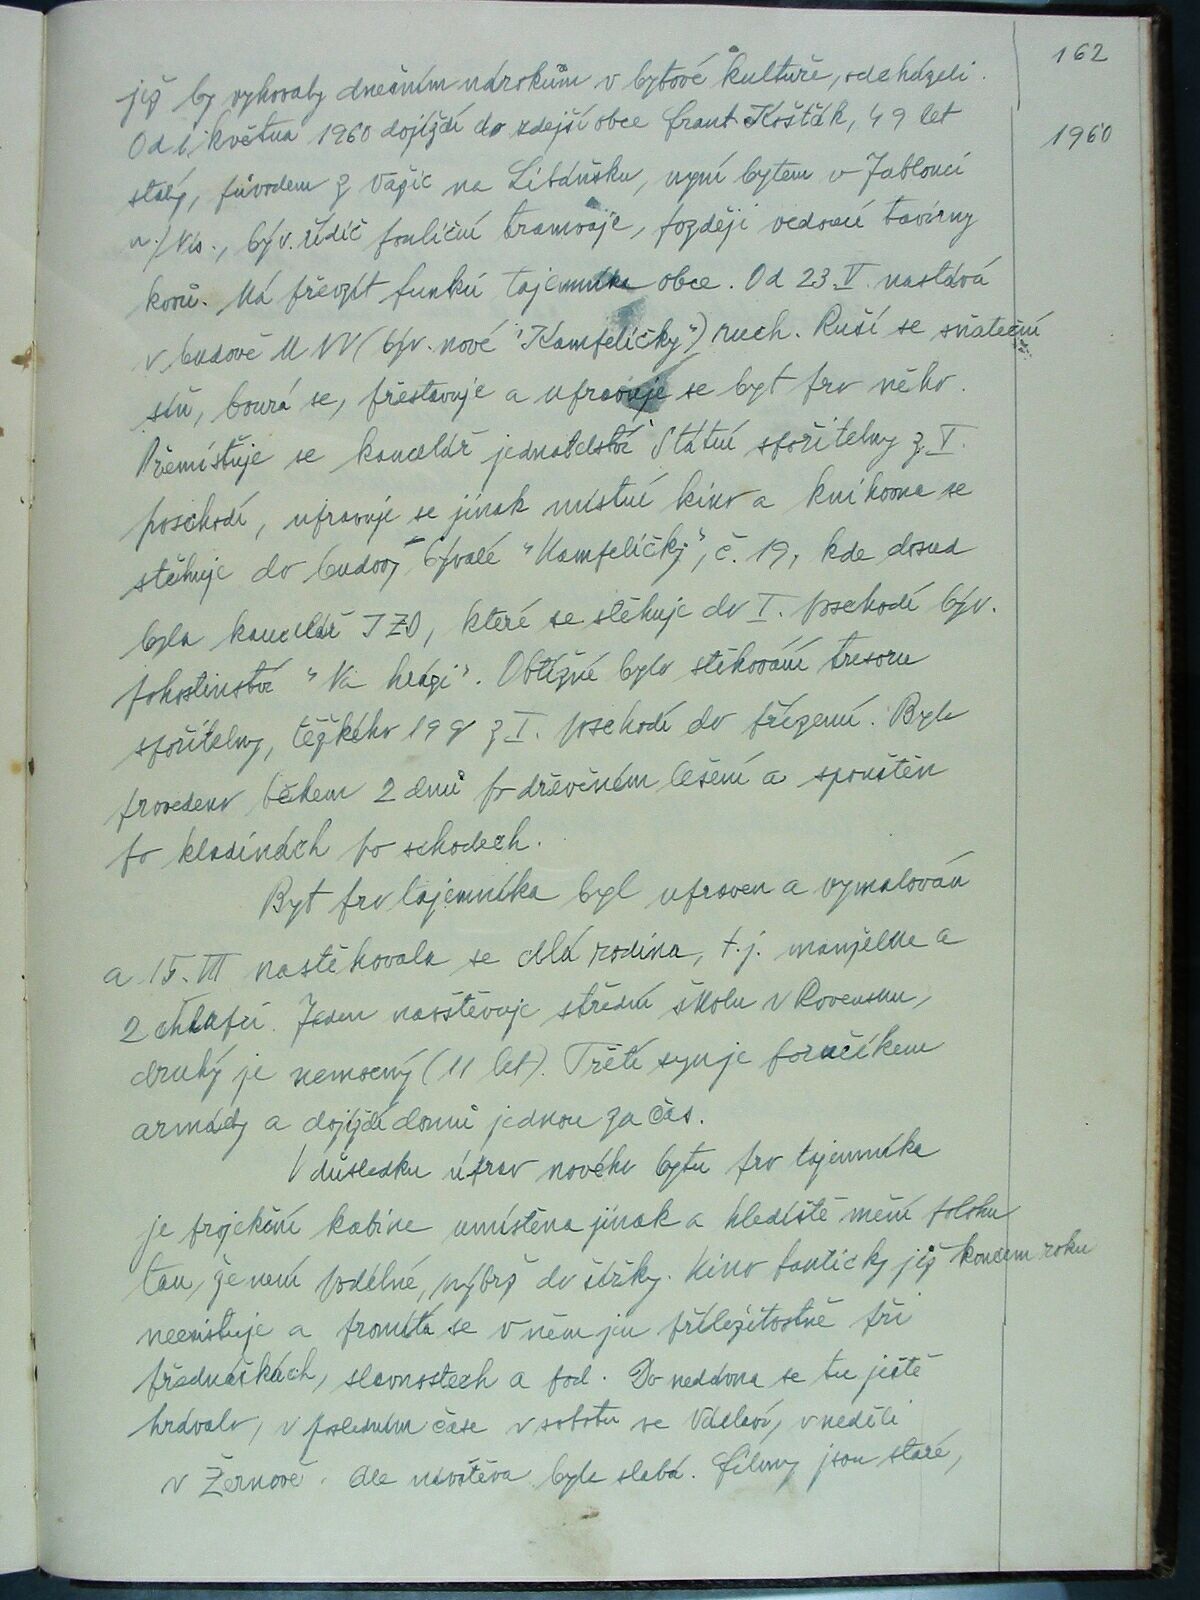 162
jež by vyhovaly dnešním nárokům v bytové kultuře, odcházeli.
1960
Od 1. května 1960 dojíždí do zdejší obce Frant. Košťák, 49 let
starý, původem z Vařic na Libáňsku, nyní bytem v Jablonci
n./Nis., býv. řidič pouliční tramvaje, později vedoucí tavírny
kovů. Má převzít funkci tajemníka obce. Od 23. V. nastává
v budově MNV (býv. nové "Kampeličky") ruch. Ruší se sňateční
síň, bourá se, přestavuje a upravuje se byt pro něho.
Přemístuje se kancelář jednatelství Státní spořitelny z I.
poschodí, upravuje se jinak místní kino a knihovna se
stěhuje do budovy bývalé "Kampeličky", č. 19, kde dosud
byla kancelář JZD, které se stěhuje do I. poschodí býv.
pohostinství "Na hrázi". Obtížné bylo stěhování tresoru
spořitelny, těžkého 19 q z I. poschodí do přízemí. Bylo
provedeno během 2 dnů po dřevěném lešení a spouštěn
po kladinách po schodech.
Byt pro tajemníka byl upraven a vymalován
a 15. VII nastěhovala se celá rodina, t.j. manželé a
2 chlapci. Jeden navštěvuje střední školu v Rovensku,
druhý je nemocný (11 let). Třetí syn je poručíkem
armády a dojíždí domů jednou za čas.
V důsledku úprav nového bytu pro tajemníka
je projekční kabina umístěna jinak a hlediště mění polohu
tou, že není podélné, nýbrž do šířky. Kino fakticky již koncem roku
neexistuje a promítá se v něm jen příležitostně při
přednáškách, slavnostech a pod. Do nedávna se tu ještě
hrávalo, v posledním čase v sobotu ve Václaví, v neděli
v Žernově. Ale návštěva byla slabá. Filmy jsou staré,